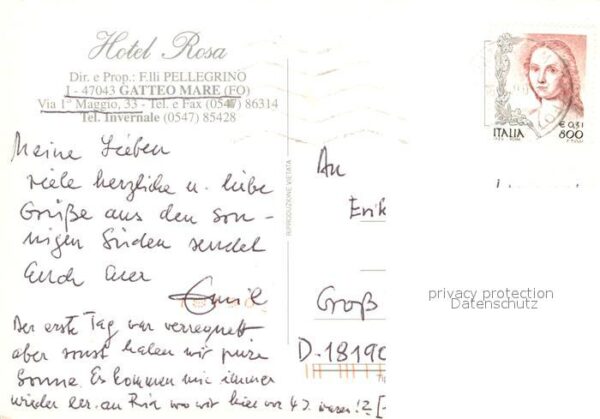 Hotel Rosa
Dir. e Prop.: F.lli PELLEGRINO
I - 47043 GATTEO MARE (FO)
Via 1° Maggio, 33 - Tel. e Fax (0547) 86314
Tel. Invernale (0547) 85428
Meine Lieben
viele herzliche u. liebe
Grüße aus den son-
nigen Süden sendet
Euch Euer
Emil
Der erste Tag war verregnet
aber sonst haben wir pure
Sonne. Es kommen mir immer
wieder Er. an Ria wo wir hier vor 4 J. waren!
RIPRODUZIONE VIETATA
An
Erik
Groß
D-1819
ITALIA
€ 0,31
800
privacy protection
Datenschutz